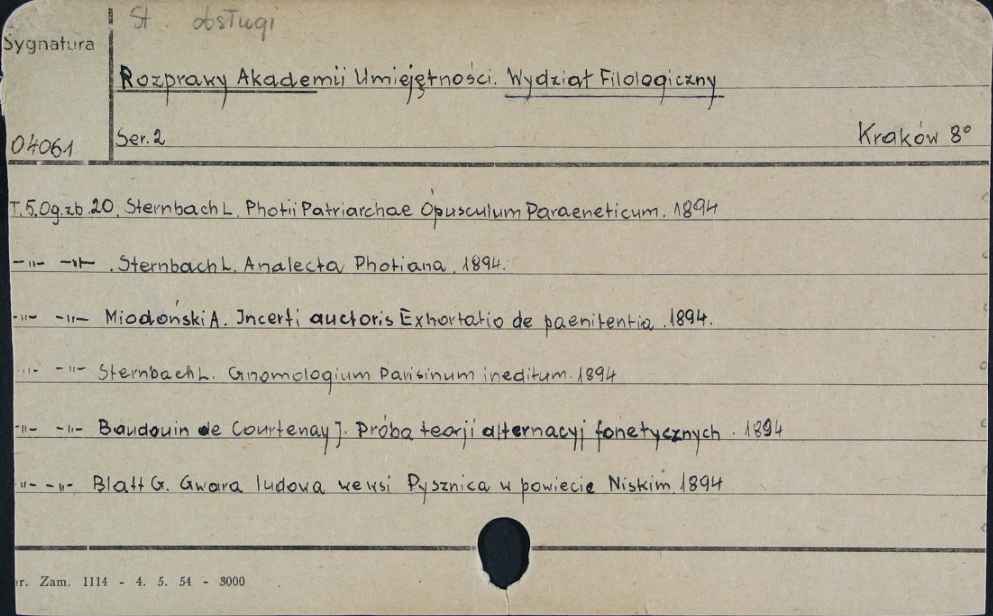 St. obsługi
Sygnatura
Rozprawy Akademii Umiejętności. Wydział Filologiczny
04061
Ser. 2
Kraków 8°
T. 5. Og. zb. 20. Sternbach L. Photii Patriarchae Opusculum Paraeneticum. 1894
-"- -"- . Sternbach L. Analecta Photiana. 1894.
-"- -"- Miodoński A. Incerti auctoris Exhortatio de paenitentia. 1894.
-"- -"- Sternbach L. Gnomologium Parisinum ineditum. 1894
-"- -"- Baudouin de Courtenay J. Próba teorji alternacyj fonetycznych. 1894
-"- -"- Blatt G. Gwara ludowa we wsi Pysznica w powiecie Niskim. 1894
r. Zam. 1114 - 4. 5. 54 - 3000